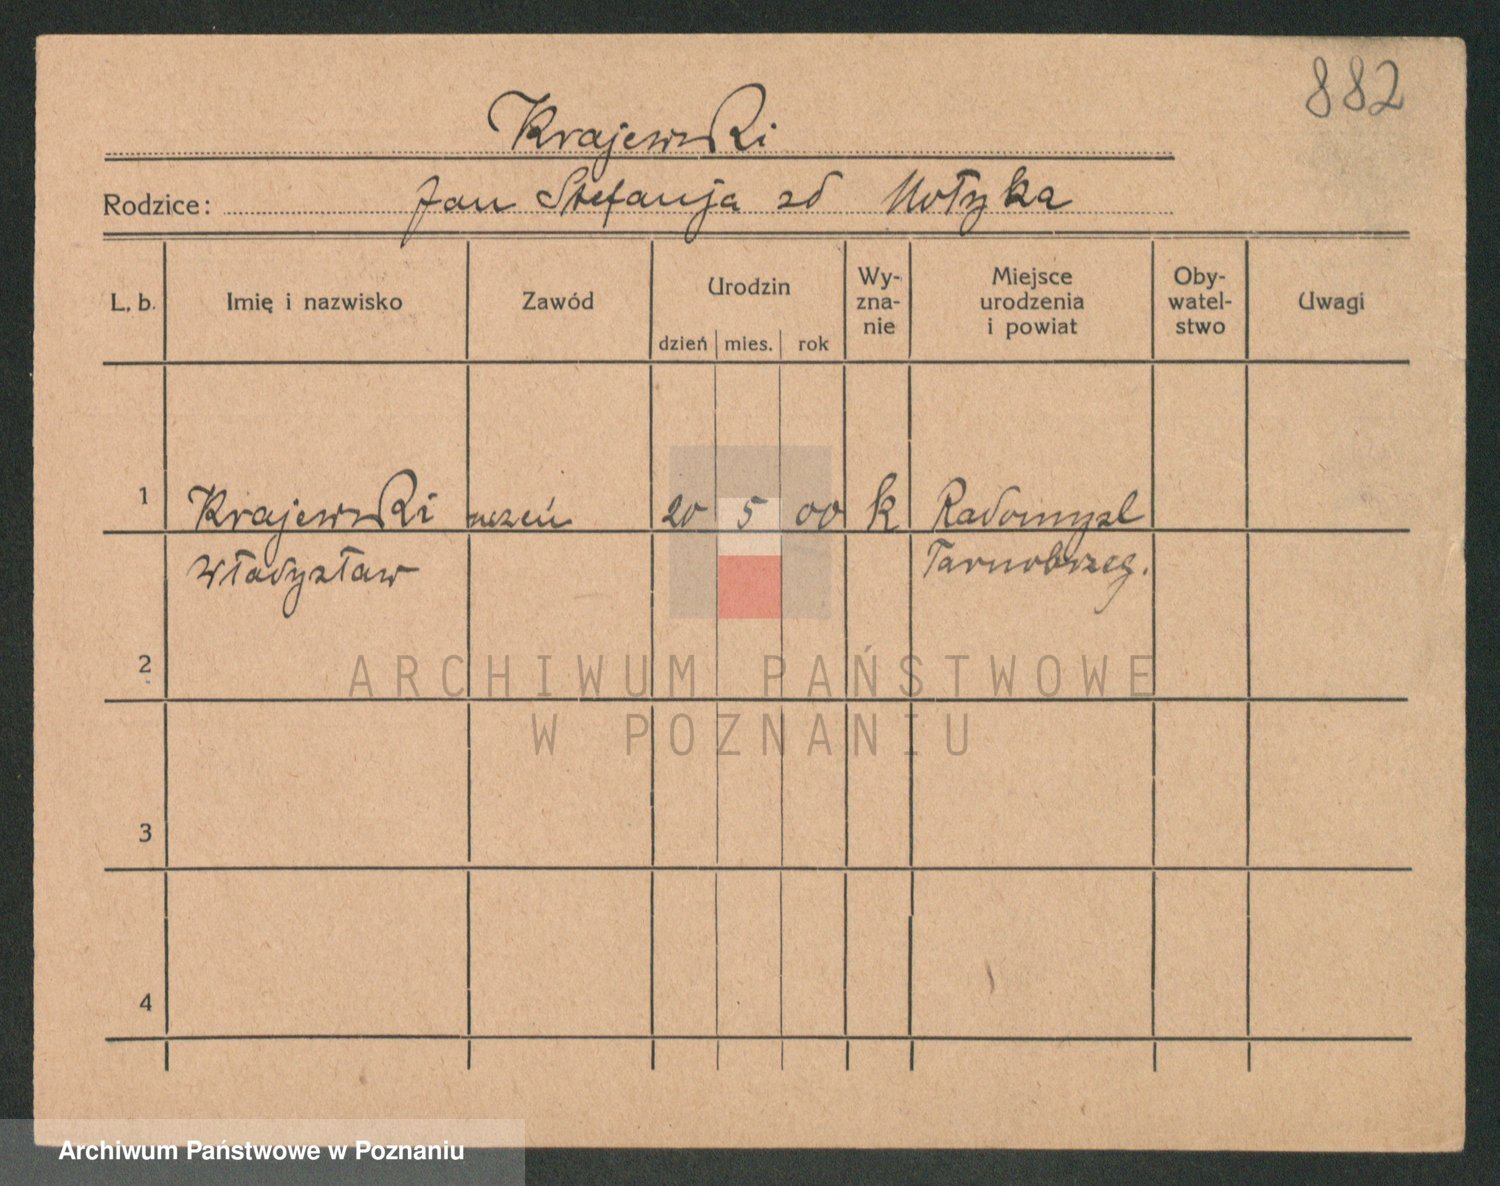 882
Krajewski
Rodzice: Jan Stefanja zd Motyka
L. b. Imię i nazwisko Zawód Urodzin dzień mies. rok Wy-zna-nie Miejsce urodzenia i powiat Oby-watel-stwo Uwagi
1 Krajewski uczeń 20 5 00 k Radomyśl
Władysław Tarnobrzeg.
2
3
4
ARCHIWUM PAŃSTWOWE
W POZNANIU
Archiwum Państwowe w Poznaniu